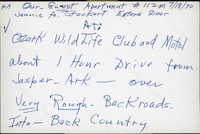 Our Guest Apartment # 112 m 7/18/70
Jeanie A. Stockert Extra Door
At:
Ozark Wildlife Club and Motel
about 1 Hour Drive from
Jasper. Ark — over
Very Rough. Back roads.
Into — Back Country